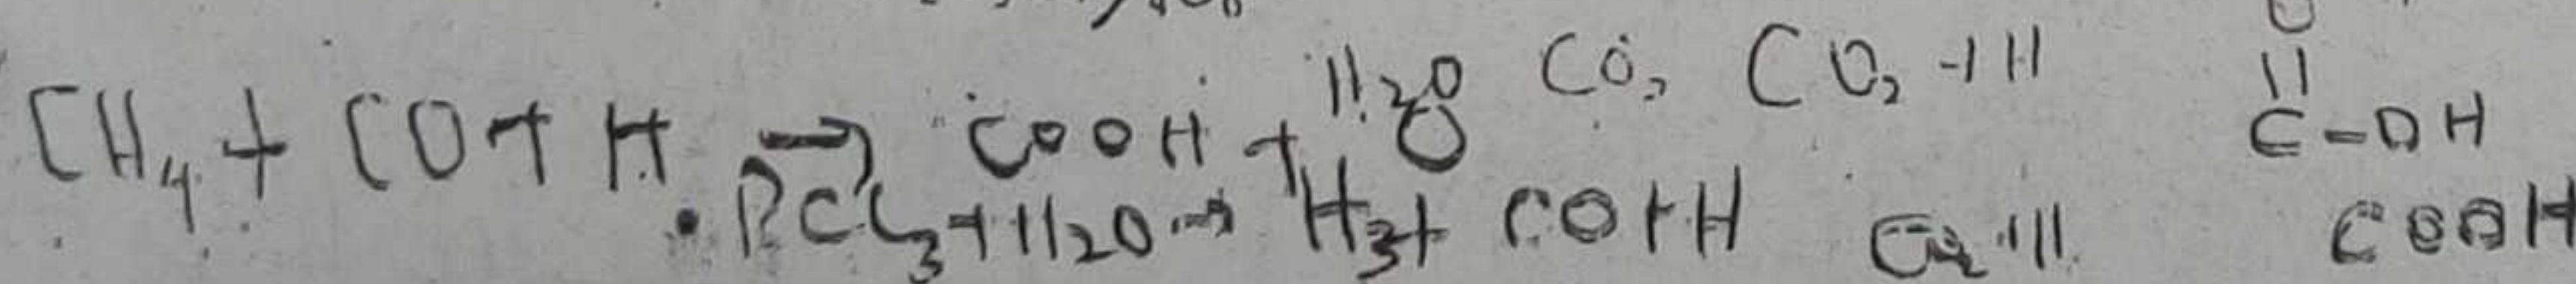 CH4 + CO + H → COOH + H2O CO2 CO2-H
PCl3 + H2O → H3 + CO + H
O
||
C-OH
COOH